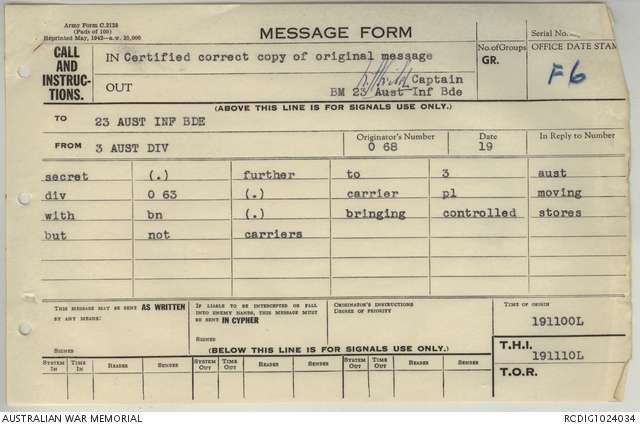 Army Form C.2128
(Pads of 100)
Reprinted May, 1942—A.W. 25,000
MESSAGE FORM
Serial No.
CALL AND INSTRUCTIONS.
IN Certified correct copy of original message
No. of Groups
GR.
OFFICE DATE STAM
F6
OUT
Captain
BM 23 Aust Inf Bde
(ABOVE THIS LINE IS FOR SIGNALS USE ONLY.)
TO 23 AUST INF BDE
FROM 3 AUST DIV
Originator's Number
O 68
Date
19
In Reply to Number
secret (.) further to 3 aust
div O 63 (.) carrier pl moving
with bn (.) bringing controlled stores
but not carriers
THIS MESSAGE MAY BE SENT AS WRITTEN
BY ANY MEANS.
SIGNED
IF LIABLE TO BE INTERCEPTED OR FALL
INTO ENEMY HANDS, THIS MESSAGE MUST
BE SENT IN CYPHER
SIGNED
ORIGINATOR'S INSTRUCTIONS
DEGREE OF PRIORITY
TIME OF ORIGIN
191100L
(BELOW THIS LINE IS FOR SIGNALS USE ONLY.)
T.H.I.
191110L
T.O.R.
SYSTEM IN TIME IN READER SENDER SYSTEM OUT TIME OUT READER SENDER SYSTEM OUT TIME OUT READER SENDER
AUSTRALIAN WAR MEMORIAL
RCDIG1024034